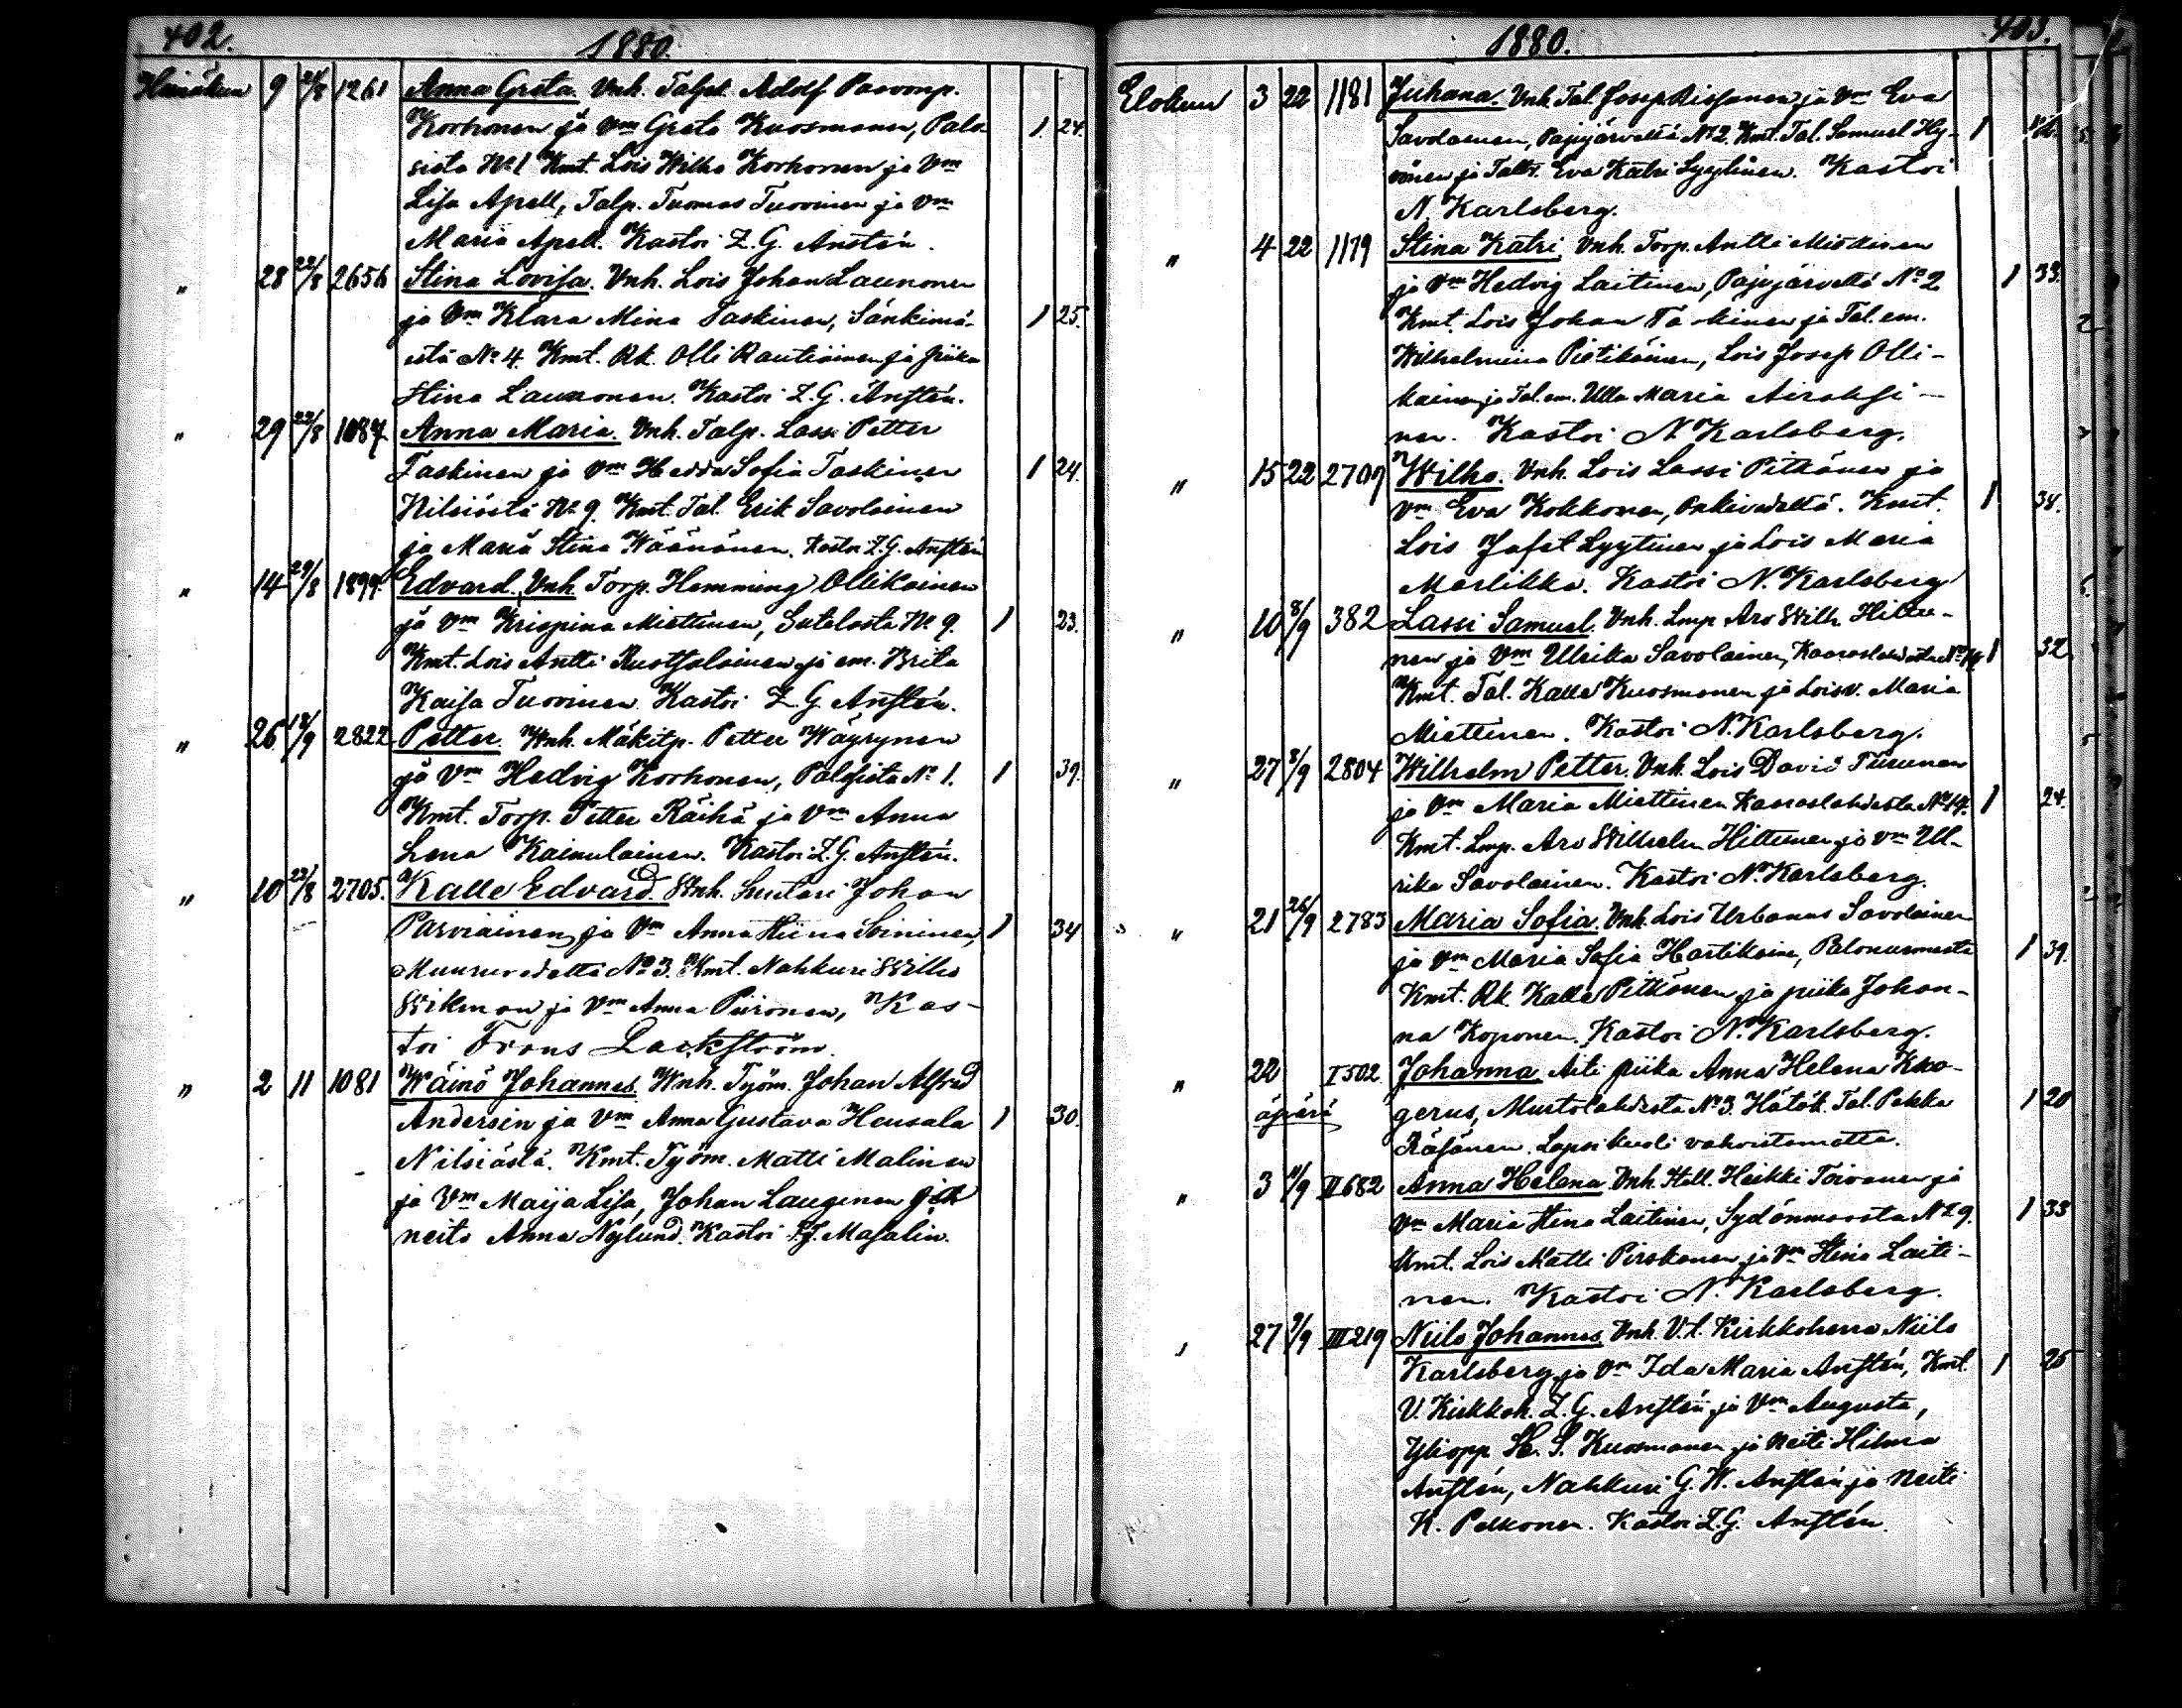 402.
1880.
Heinäkuu 9 24/8 1261 Anna Greta. Vnh. Talpk. Adolf Paavonp.
Korhonen ja Vm Greta Kuosmonen, Palo- 1 24.
sista No 1 Kmt. Lois Wilho Korhonen ja Vm
Lisa Apell, Talp. Tuomas Tuovinen ja Vm
Maria Apell. Kastoi Z. G. Anstén.
" 28 22/8 2656 Stina Lovisa. Vnh. Lois Johan Launonen
ja Vm Klara Mina Taskinen, Sänkimä- 1 25.
estä No 4. Kmt. Rk. Olli Rautiainen ja piika
Stina Launonen. Kastoi Z. G. Anstén.
" 29 22/8 1087 Anna Maria. Vnh. Talp. Lassi Petter
Taskinen ja Vm Hedda Sofia Taskinen 1 24.
Nilsiästä No 9. Kmt. Tal. Erik Savolainen
ja Maria Stina Wäänänen. Kastoi Z. G. Anstén
" 14 29/8 1899 Edvard. Vnh. Torp. Hemming Ollikainen
ja Vm Krispina Miettinen, Sutelasta No 9. 1 23.
Kmt. Lois Antti Ruotsalainen ja em. Brita
Kaisa Tuovinen. Kastoi Z. G. Anstén.
" 26 12/9 2822 Petter. Wnh. Mäkitp. Petter Wäyrynen
ja Vm Hedvig Korhonen, Palosista No 1. 1 39.
Kmt. Torp. Petter Räihä ja Vm Anna
Lena Kainulainen. Kastoi Z. G. Anstén.
" 10 22/8 2705. Kalle Edvard. Wnh. Suutari Johan
Parviainen ja Vm Anna Stina Soininen, 1 34
Muuruvedeltä No 3. Kmt. Nahkuri Wilho
Wikman ja Vm Anna Piironen, Kas-
toi Frans Lackström.
" 2 11 1081 Wäinö Johannes. Wnh. Työm. Johan Alfred
Andersin ja Vm Anna Gustava Heusala 1 30.
Nilsiästä. Kmt. Työm. Matti Malinen
ja Vm Maija Lisa, Johan Lauginen ja
neito Anna Nylund. Kastoi Masalin.
403.
1880.
Elokuu 3 22 1181 Juhana. Vnh. Tal. Josep Rissanen ja Vm Eva
Savolainen, Pajujärveltä No 2. Kmt. Tal. Samuel Hy- 1
vönen ja Taltr. Eva Katri Lyytinen. Kastoi
N. Karlsberg.
" 4 22 1179 Stina Katri. Vnh. Torp. Antti Miskinen
ja Vm Hedvig Laitinen, Pajujärveltä No 2 1 33.
Kmt. Lois Johan Taskinen ja Tal. em.
Wilhelmiina Pietikäinen, Lois Josep Olli-
kainen ja Tal. em. Ulla Maria Airaksi-
nen. Kastoi N. Karlsberg.
" 15 22 2707 Wilho. Vnh. Lois Lassi Pitkänen ja
Vm Eva Kokkonen, Onkivedeltä. Kmt. 1 34.
Lois Jafet Lyytinen ja Lois Maria
Martikka. Kastoi N. Karlsberg
" 10 8/9 382 Lassi Samuel. Vnh. Lmp. Aro Wilh. Hiltu-
nen ja Vm Ulrika Savolainen, Kaaraslahdesta No 14 1 32
Kmt. Tal. Kalle Kuosmonen ja Loisv. Maria
Miettinen. Kastoi N. Karlsberg.
" 27 8/9 2804 Wilhelm Petter. Vnh. Lois David Turunen
ja Vm Maria Miettinen Kaaraslahdesta No 14. 1 24.
Kmt. Lmp. Aro Wilhelm Hiltunen ja Vm Ul-
rika Savolainen. Kastoi N. Karlsberg.
" 21 26/9 2783 Maria Sofia. Vnh. Lois Urbanus Savolainen
ja Vm Maria Sofia Hartikaine, Palonurmesta 1 39.
Kmt. Rk. Kalle Pitkänen ja piika Johan-
na Koponen. Kastoi N. Karlsberg.
" 22 I 502 Johanna. Äiti piika Anna Helena Kro-
äpärä gerus, Murtolahdesta No 3. Hätäk. Tal. Pekka 1 20
Räsänen. Lapsi kuoli vahvistamatta.
" 3 11/9 II 682 Anna Helena. Vnh. Htll. Heikki Toivanen ja
Vm Maria Stina Laitinen, Sydänmaasta No 9. 1 33
Kmt. Lois Matti Pirskanen ja Vm Stina Laiti-
nen. Kastoi N. Karlsberg.
" 27 9/9 III 219 Niilo Johannes. Vnh. V. t. Kirkkoherra Niilo
Karlsberg ja Vm Ida Maria Anstén, Kmt. 1 25
V. Kirkkoh. Z. G. Anstén ja Vm Augusta,
Yliopp. S. Kuosmanen ja neiti Hilma
Anstén, Nahkuri G. W. Anstén ja neiti
K. Pelkonen. Kastoi Z. G. Anstén.